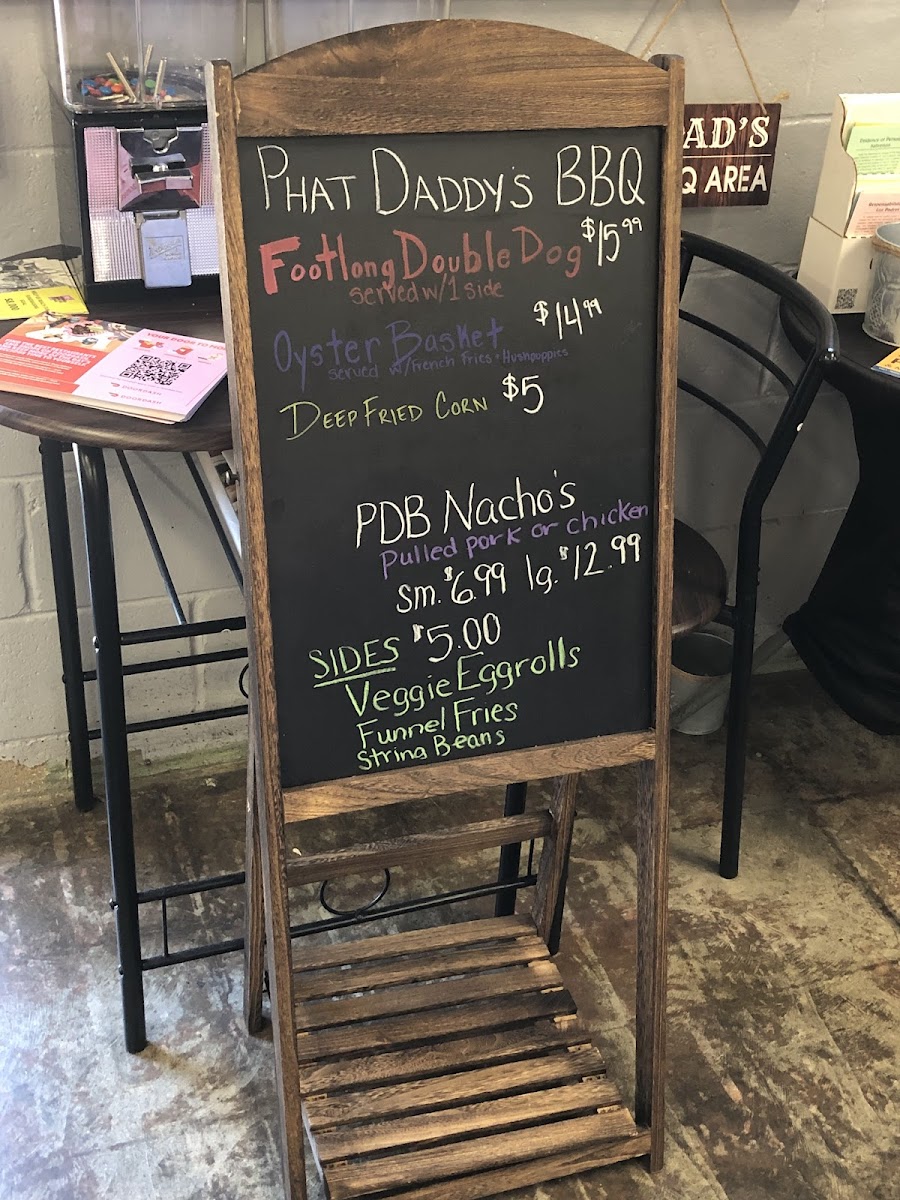 PHAT DADDY'S BBQ
Footlong Double Dog $15.99
served w/1 side
Oyster Basket $14.99
served w/French Fries + Hushpuppies
DEEP FRIED CORN $5
PDB Nacho's
Pulled pork or chicken
sm. $6.99 lg. $12.99
SIDES $5.00
Veggie Eggrolls
Funnel Fries
String Beans
AD'S
Q AREA
DOORDASH